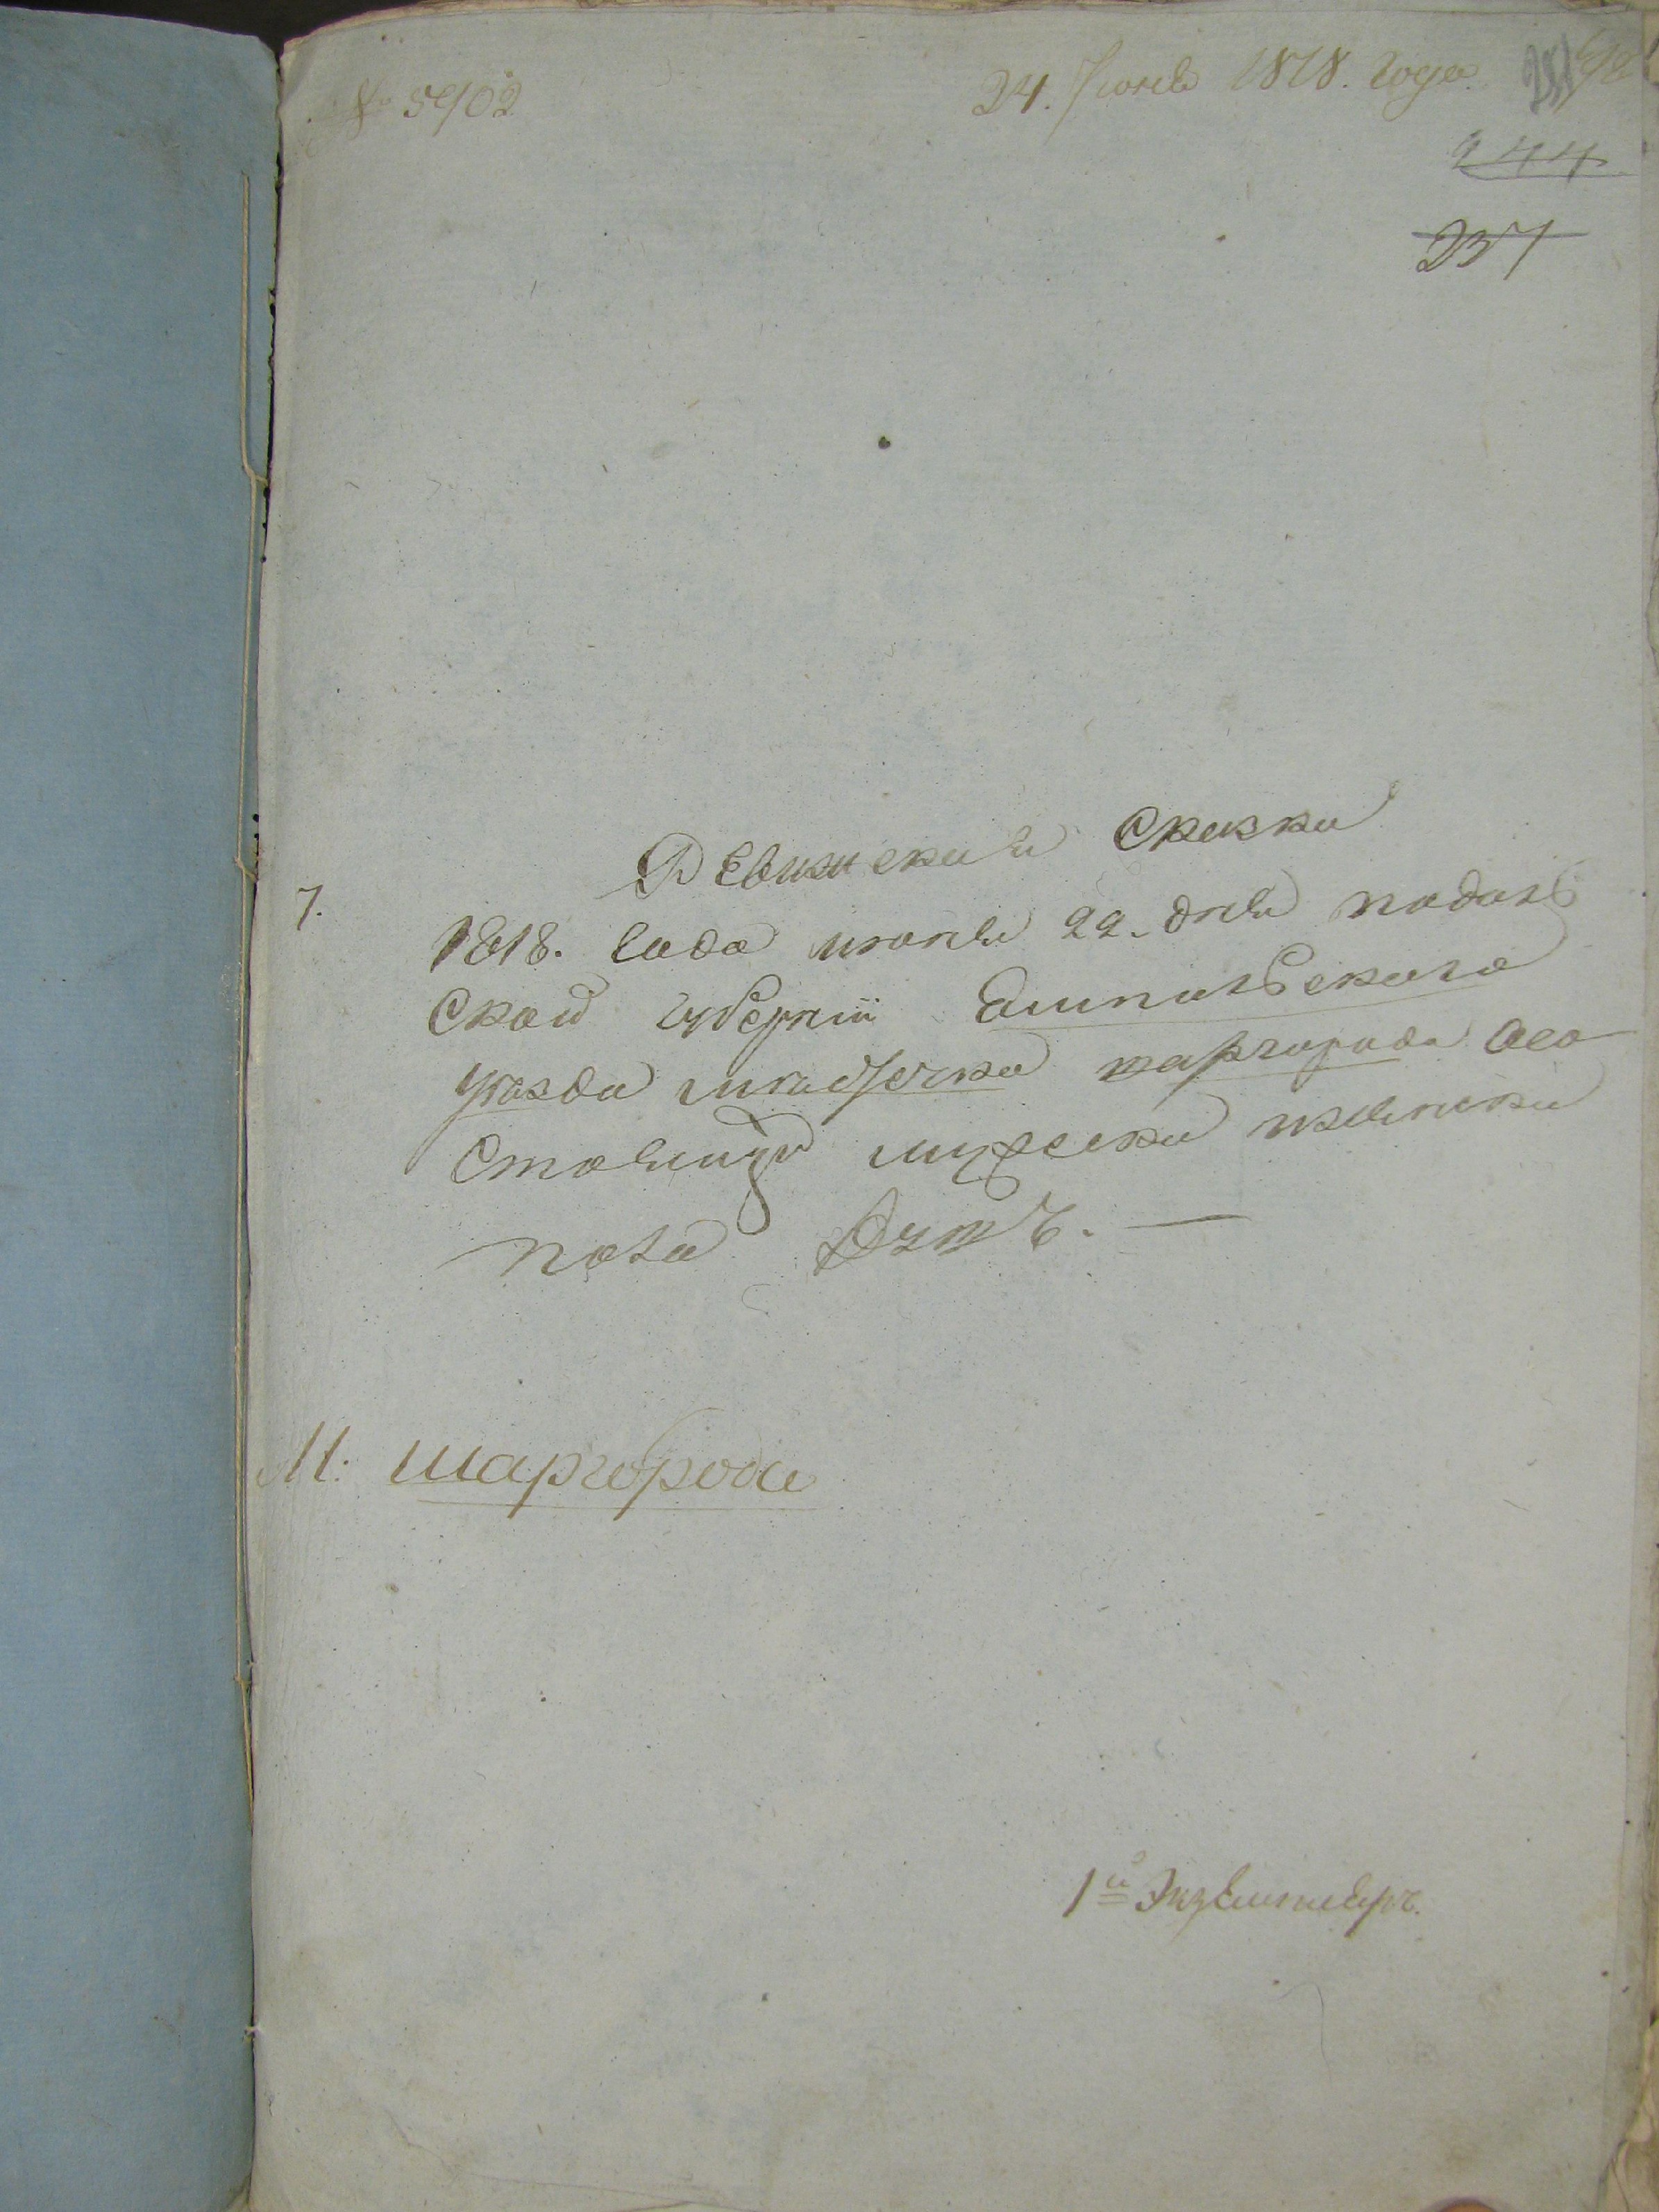 № 5902
24. Июня 1818. года.
244
237
Ревизская Сказка
7.
1818. Года июня 22. дня подоль
Ской губернии Ямпольскаго
уезда местечка шаргорода осо
Стоящъ мужеска и женска
пола душъ. —
М: шаргорода
1й Экземпляръ.